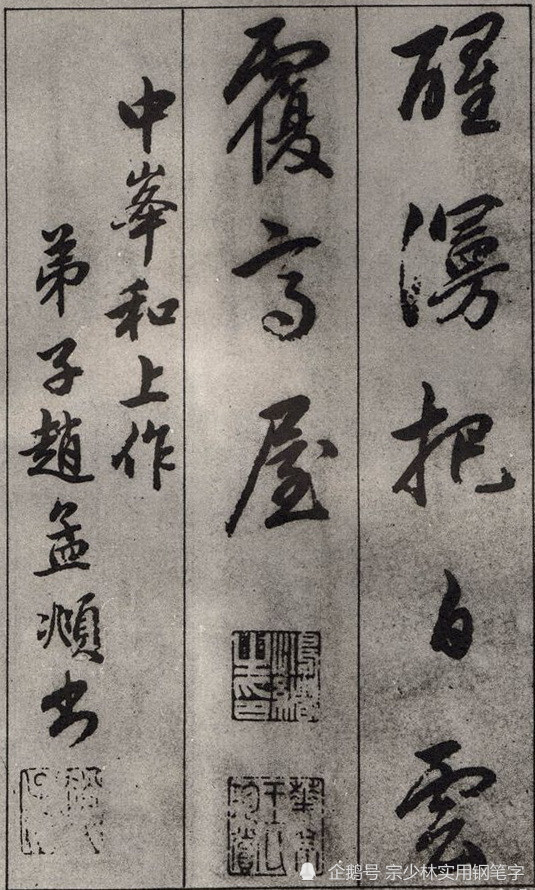 醒漫把白雲
覆高屋
中峯和上作
弟子趙孟頫書
企鹅号 宗少林实用钢笔字